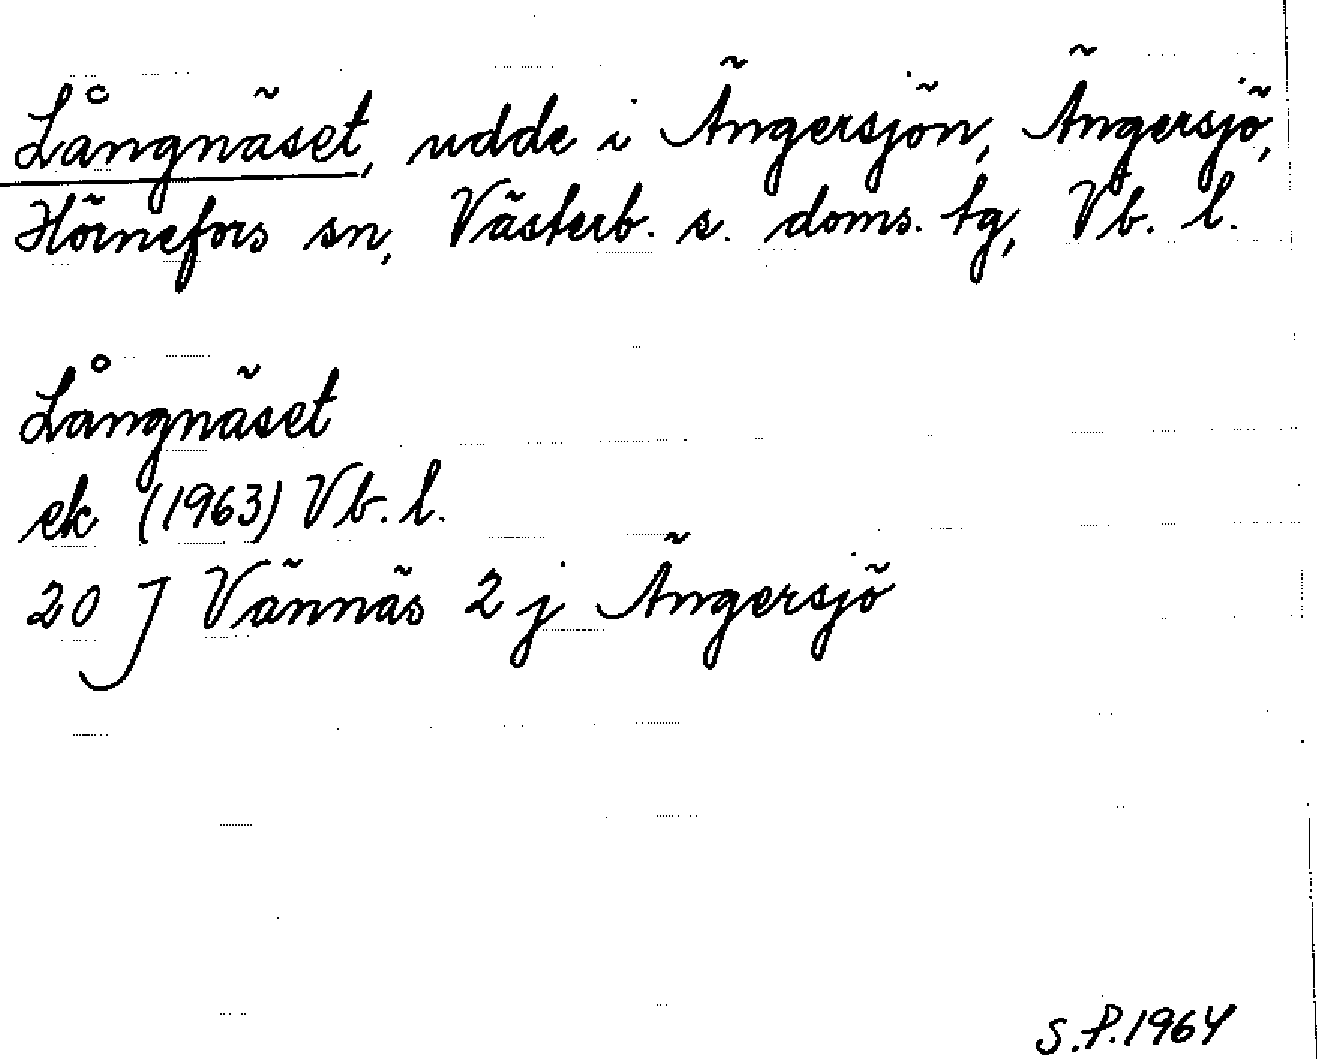 Långnäset, udde i Ängersjön, Ängersjö,
Hörnefors sn, Västerb. s. doms. tg, Vb. l.
Långnäset
ek (1963) Vb. l.
20 J Vännäs 2 j Ängersjö
S.P.1964